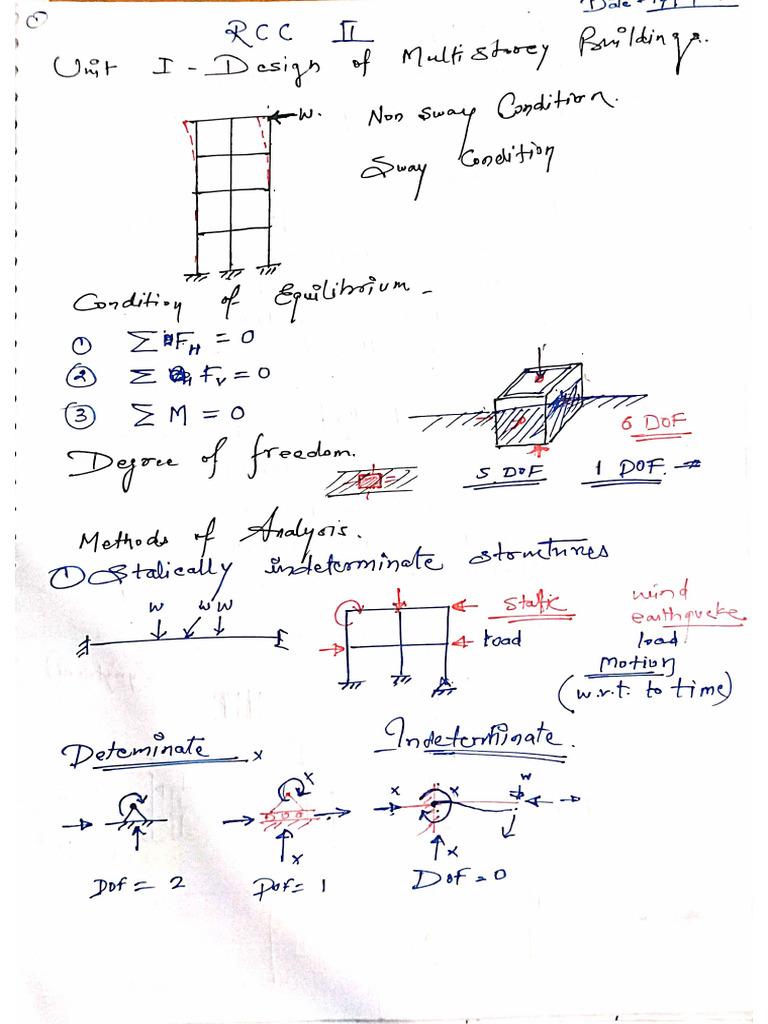 ①
Date
RCC II
Unit I - Design of Multistorey Buildings.
W.
Non Sway Condition.
Sway Condition
Condition of Equilibrium -
① Σ FH = 0
② Σ Fv = 0
③ Σ M = 0
6 DOF
Degree of freedom.
5 DOF 1 DOF.
Methods of Analysis.
① Statically indeterminate structures
w w w
static
load
wind
earthquake
load
Motion
(w.r.t. to time)
Deteminate x
Indeterminate.
x
x x w
x x
Dof = 2 Dof = 1 Dof = 0